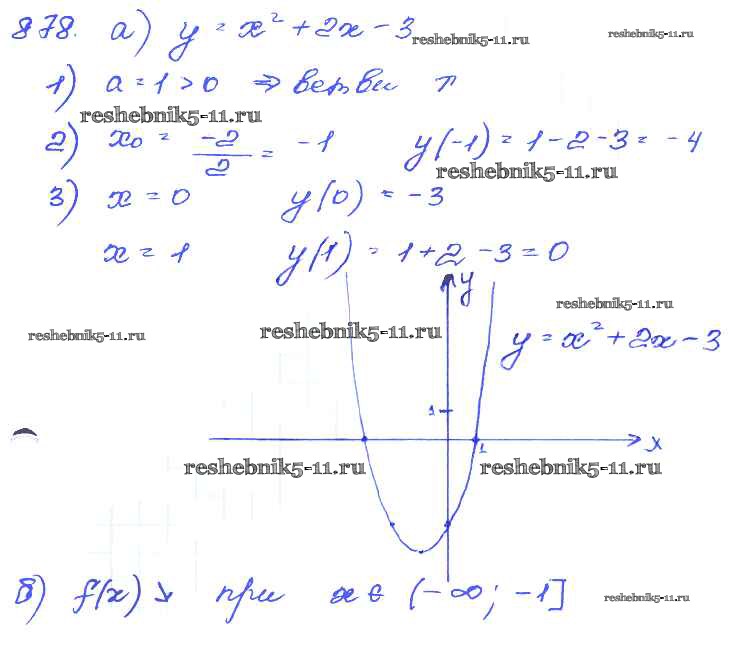 878. а) y = x² + 2x - 3 reshebnik5-11.ru reshebnik5-11.ru
1) a = 1 > 0 ⇒ ветви ↑
reshebnik5-11.ru
2) x₀ = -2/2 = -1 y(-1) = 1 - 2 - 3 = -4
reshebnik5-11.ru
3) x = 0 y(0) = -3
x = 1 y(1) = 1 + 2 - 3 = 0
y
reshebnik5-11.ru
reshebnik5-11.ru reshebnik5-11.ru y = x² + 2x - 3
1
1 x
reshebnik5-11.ru reshebnik5-11.ru
б) f(x) ↘ при x ∈ (-∞; -1] reshebnik5-11.ru